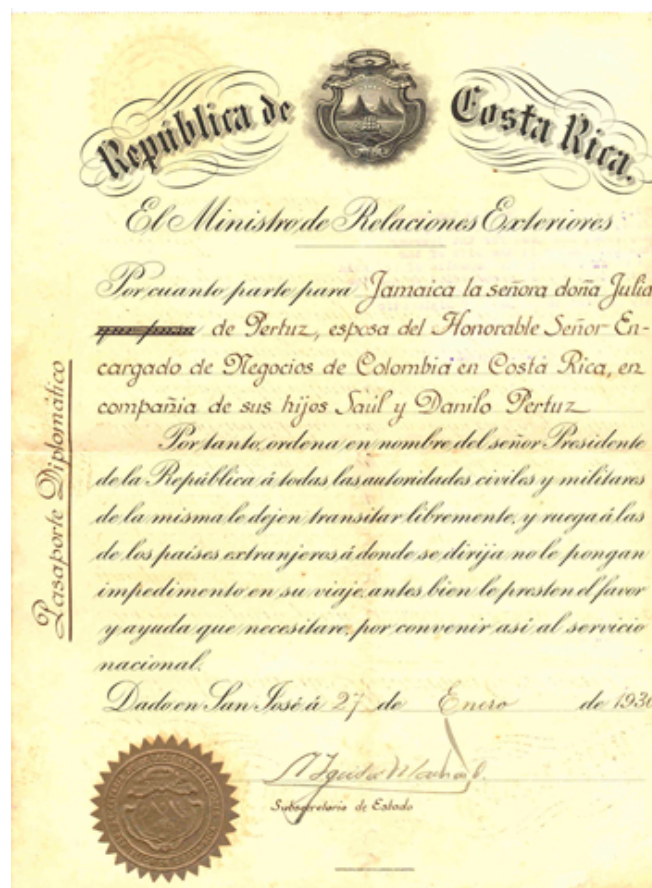 República de Costa Rica.
El Ministro de Relaciones Exteriores
Por cuanto parte para Jamaica la señora doña Julia
de Pertuz, esposa del Honorable Señor En-
cargado de Negocios de Colombia en Costa Rica, en
compañia de sus hijos Saúl y Danilo Pertuz
Por tanto, ordena en nombre del señor Presidente
de la República á todas las autoridades civiles y militares
de la misma le dejen transitar libremente, y ruega á las
de los países extranjeros á donde se dirija no le pongan
impedimento en su viaje, antes bien le presten el favor
y ayuda que necesitare, por convenir asi al servicio
nacional.
Dado en San José á 27 de Enero de 193
Subsecretario de Estado
Pasaporte Diplomático